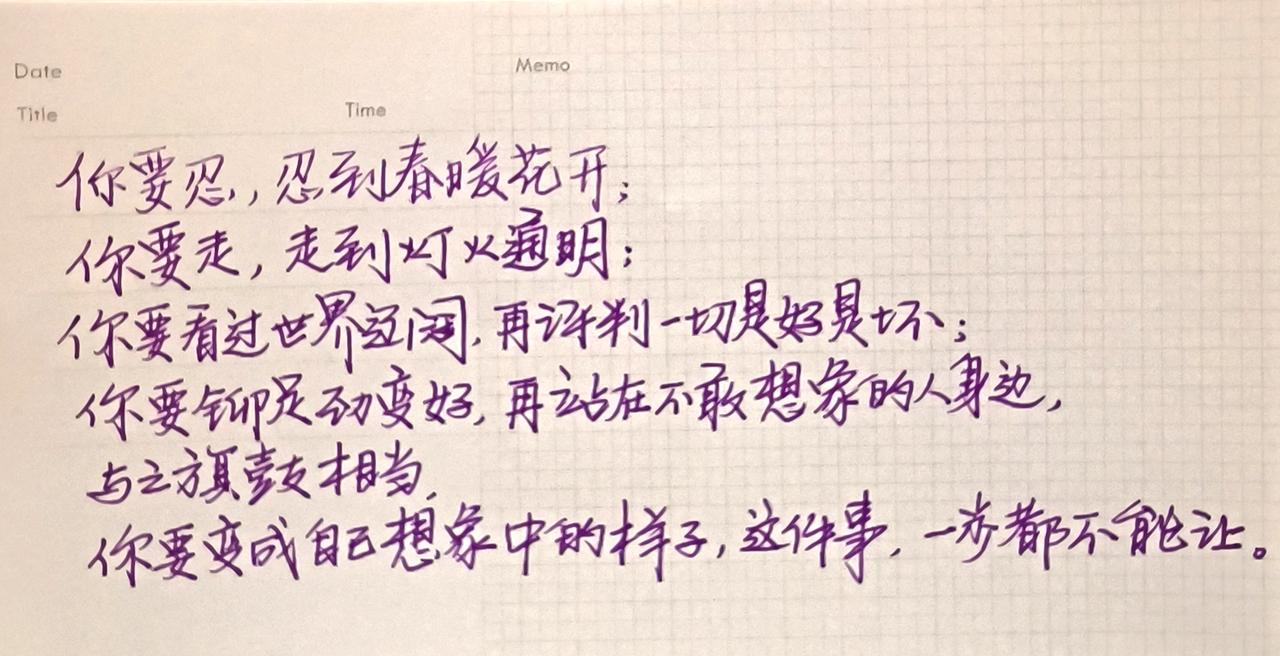 Date
Memo
Title
Time
你要忍,忍到春暖花开;
你要走,走到灯火通明;
你要看过世界辽阔,再评判一切是好是坏;
你要铆足劲变好,再站在不敢想象的人身边,
与之旗鼓相当,
你要变成自己想象中的样子,这件事,一步都不能让。